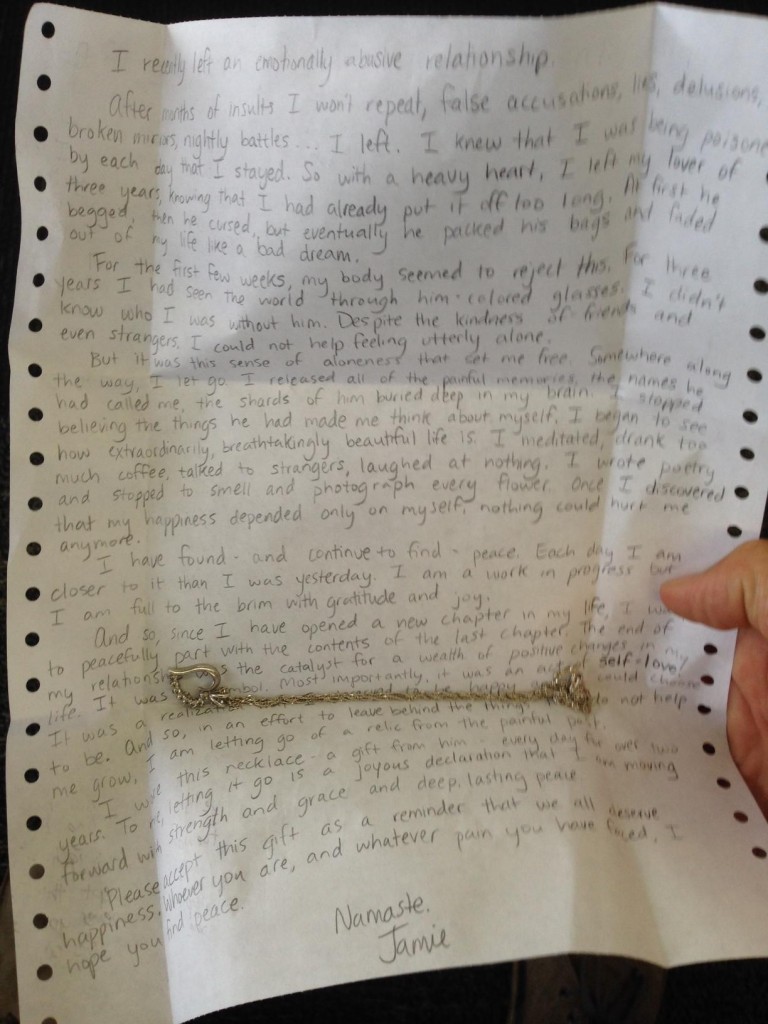 I recently left an emotionally abusive relationship.
After months of insults I won't repeat, false accusations, lies, delusions,
broken mirrors, nightly battles... I left. I knew that I was being poisone
by each day that I stayed. So with a heavy heart, I left my lover of
three years, knowing that I had already put it off too long. At first he
begged, then he cursed, but eventually he packed his bags and faded
out of my life like a bad dream.
For the first few weeks, my body seemed to reject this. For three
years I had seen the world through him-colored glasses. I didn't
know who I was without him. Despite the kindness of friends and
even strangers, I could not help feeling utterly alone.
But it was this sense of aloneness that set me free. Somewhere along
the way, I let go. I released all of the painful memories, the names he
had called me, the shards of him buried deep in my brain. I stopped
believing the things he had made me think about myself. I began to see
how extraordinarily, breathtakingly beautiful life is. I meditated, drank too
much coffee, talked to strangers, laughed at nothing. I wrote poetry
and stopped to smell and photograph every flower. Once I discovered
that my happiness depended only on myself, nothing could hurt me
anymore.
I have found - and continue to find - peace. Each day I am
closer to it than I was yesterday. I am a work in progress but
I am full to the brim with gratitude and joy.
And so, since I have opened a new chapter in my life, I
to peacefully part with the contents of the last chapter. The end of
my relationship was the catalyst for a wealth of positive changes in my
life. It was a symbol. Most importantly, it was an act of self-love!
It was a could choose
to be. And so, in an effort to leave behind the things do not help
me grow, I am letting go of a relic from the painful past.
I this necklace - a gift from him - every day for over two
years. To me, letting it go is a joyous declaration that I am moving
forward with strength and grace and deep, lasting peace
Please accept this gift as a reminder that we all deserve
happiness. Whoever you are, and whatever pain you have faced, I
hope you find peace.
Namaste.
Jamie